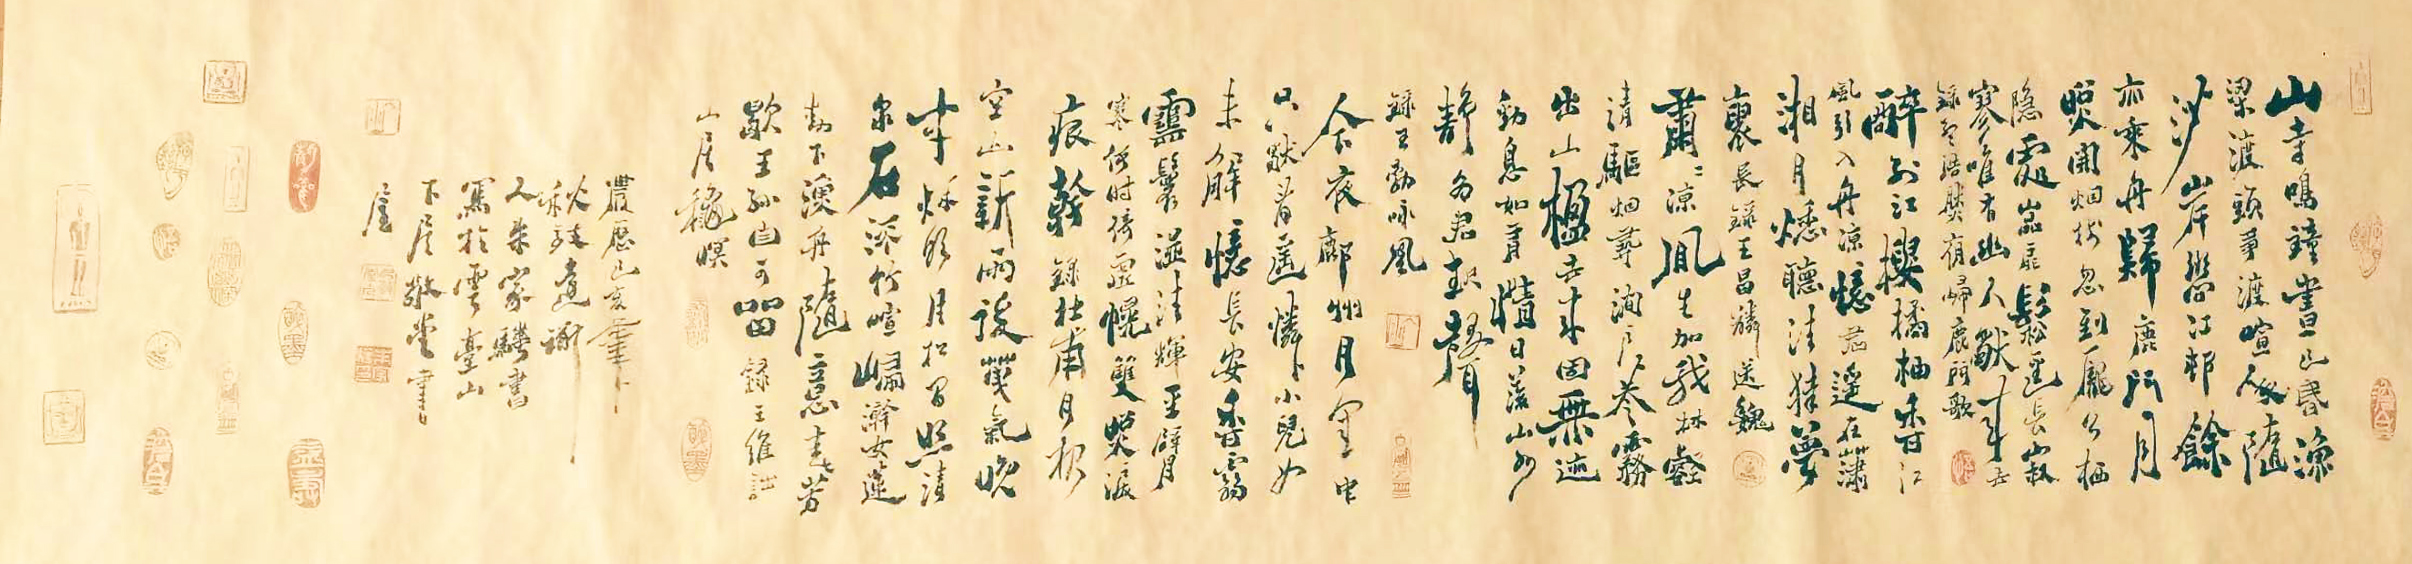 山寺鳴鐘晝已昏漁
梁渡頭爭渡喧人隨
沙岸向江邨余
亦乘舟歸鹿門月
照開烟樹忽到龐公栖
隱處巖扉松逕長寂
寥唯有幽人獸來去
錄孟浩然夜歸鹿門歌
醉別江樓橘柚香江
風引入舟涼憶君遙在瀟
湘月愁聽清猿夢
裏長錄王昌齡送魏
肅肅涼風生加我林壑
清驅烟尋澗戶卷霧
出山楹去來固無迹
動息如有情日落山水
靜為君起松聲
錄王勃詠風
今夜鄜州月閨中
只獨看遙憐小兒女
未解憶長安香霧
雲鬟濕清輝玉臂
寒何時倚虛幌雙照淚
痕乾錄杜甫月夜
空山新雨後天氣晚
來秋明月松間照清
泉石流竹喧歸浣女蓮
動下漁舟隨意春芳
歇王孫自可留錄王維詩
山居秋暝
農歷辛亥年
秋
人朱家驥書
寫於雲臺山
下居敬堂書
屋